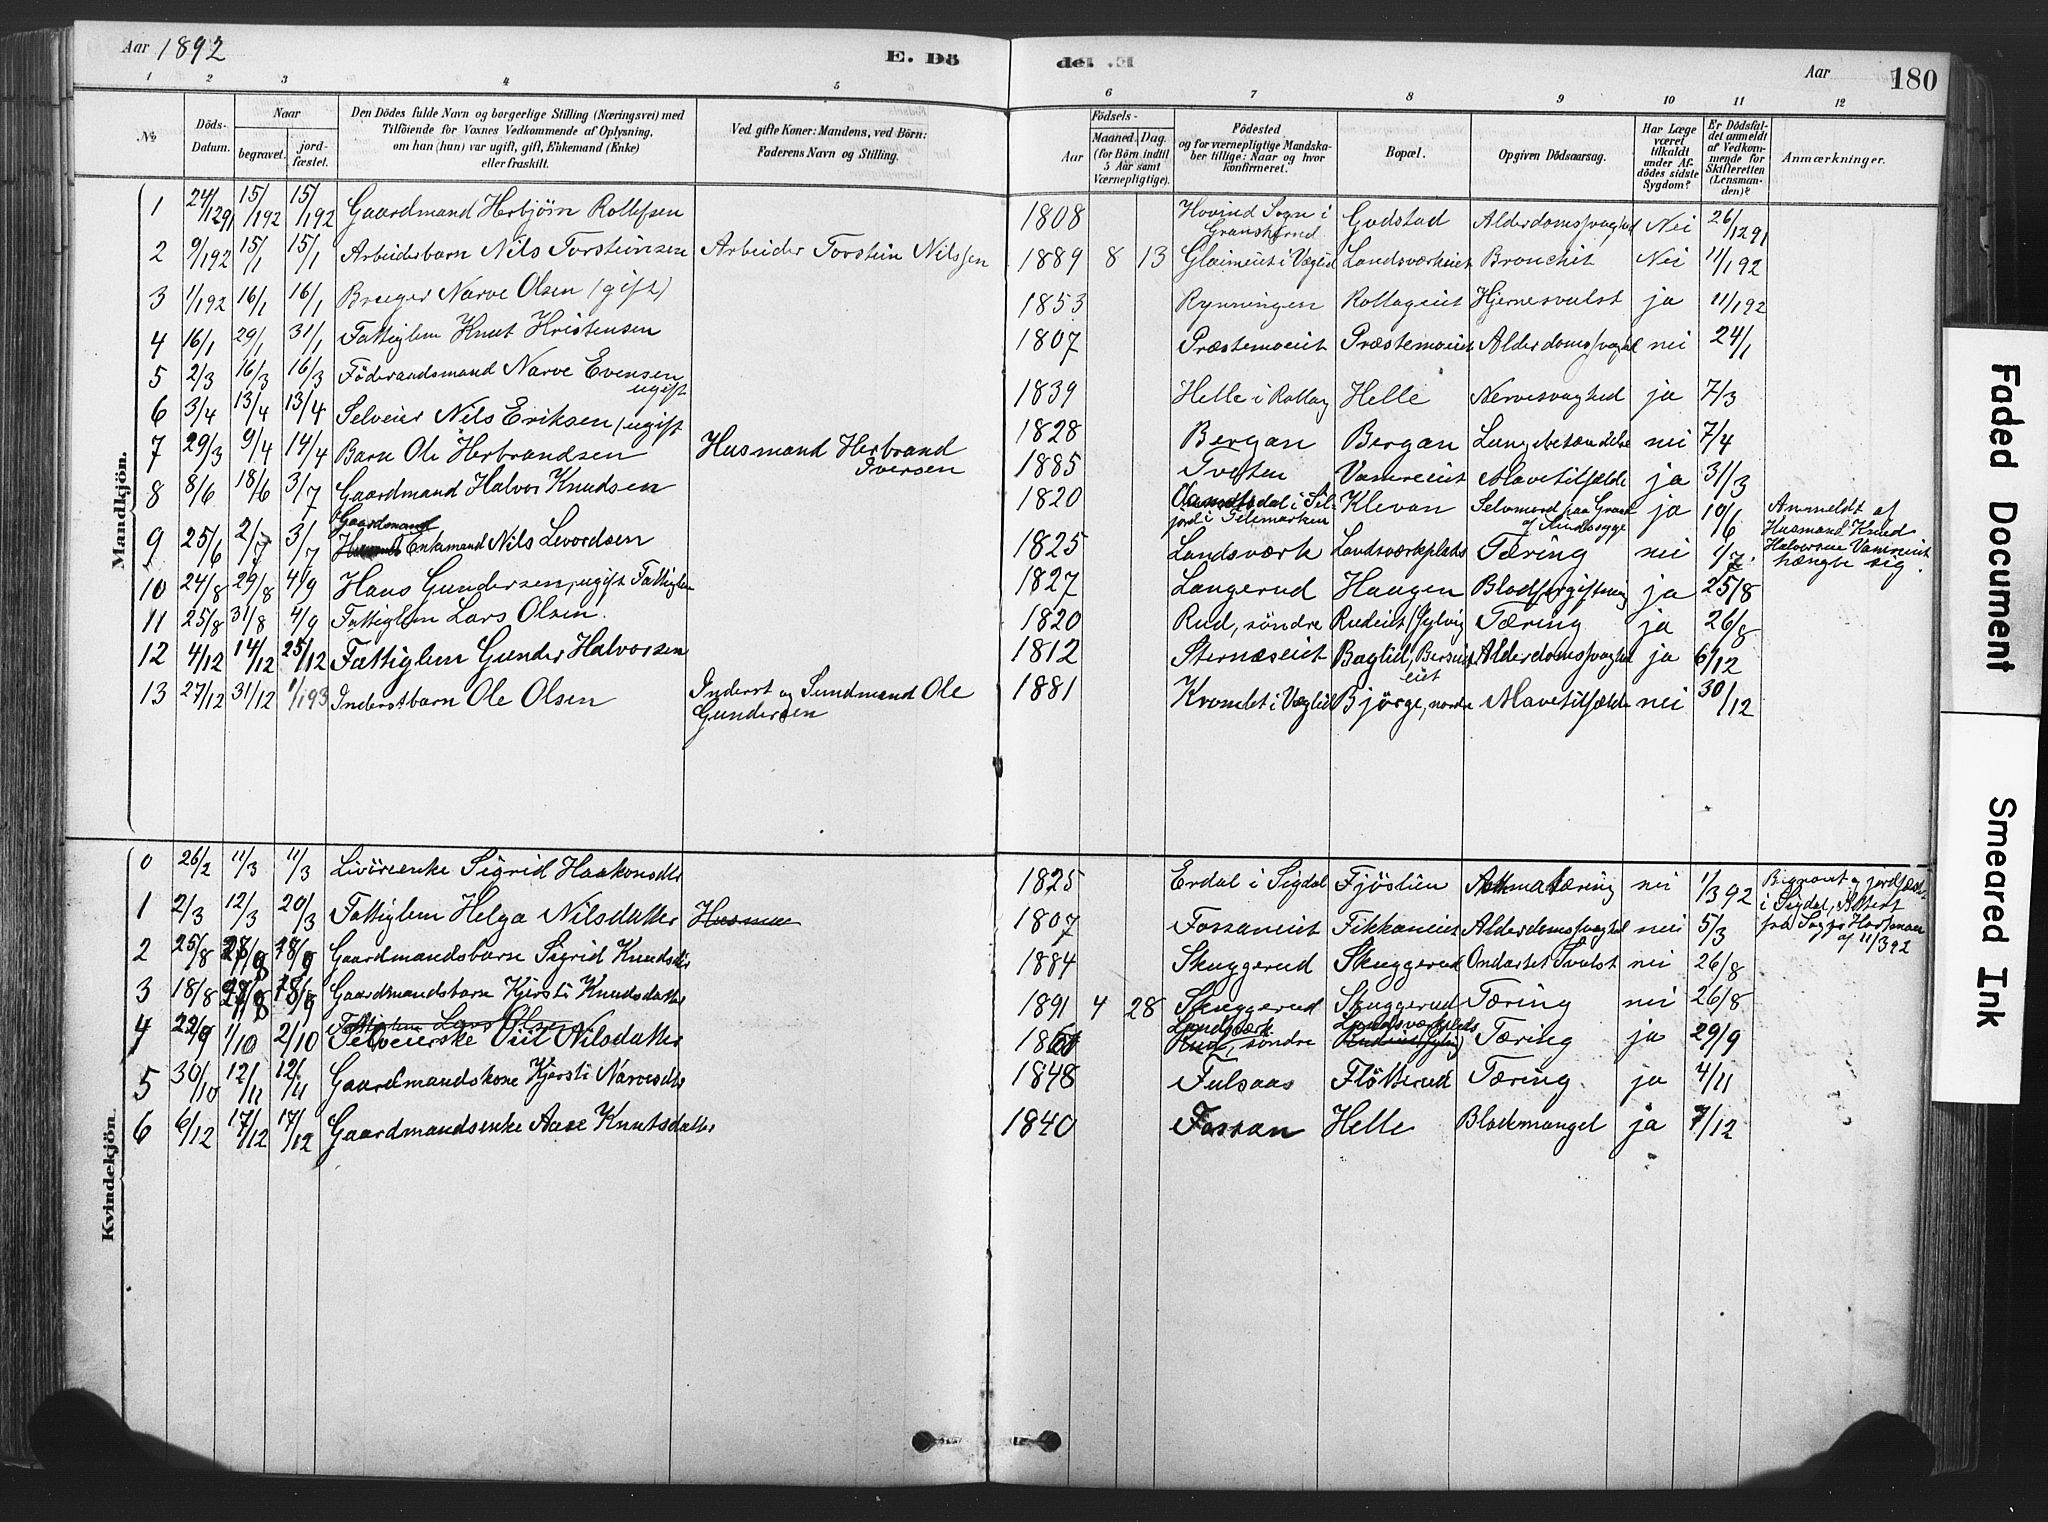 Aar 1892 E. Dö
de. .E Aar 180
1 2 3 4 5 6 7 8 9 10 11 12
No. Döds-Datum. Naar begravet. jordfæstet. Den Dödes fulde Navn og borgerlige Stilling (Næringsvei) med Tilföiende for Voxnes Vedkommende af Oplysning, om han (hun) var ugift, gift, Enkemand (Enke) eller fraskilt. Ved gifte Koner: Mandens, ved Börn: Faderens Navn og Stilling. Födsels- Aar Maaned. Dag. (for Börn indtil 5 Aar samt Værnepligtige). Födested og for værnepligtige Mandskaber tillige: Naar og hvor konfirmeret. Bopæl. Opgiven Dödsaarsag. Har Læge været tilkaldt under Afdödes sidste Sygdom? Er Dödsfaldet anmeldt af Vedkommende for Skifteretten (Lensmanden)? Anmærkninger.
Mandkjön.
1 24/1291 15/192 15/192 Gaardmand Herbjörn Rollefsen 1808 Hovind Sogn i Gransherred Godstad Alderdomssvaghed Nei 26/1291
2 9/192 15/1 15/1 Arbeiderbarn Nils Torsteinsen Arbeider Torstein Nilssen 1889 8 13 Glaimeiet i Væglid Landsværkeiet Bronchit Nei 11/192
3 1/192 16/1 16/1 Bruger Narve Olsen (gift) 1853 Rynningen Rollageiet Hjernesvulst ja 11/192
4 16/1 29/1 31/1 Fattiglem Knut Kristensen 1807 Præstemoeiet Præstemoeiet Alderdomssvaghed nei 24/1
5 2/3 16/3 16/3 Föderaadsmand Narve Evensen ugift 1839 Helle i Rollag Helle Nervesvaghed ja 7/3
6 3/4 13/4 13/4 Selveier Nils Eriksen, ugift 1828 Bergan Bergan Lungebetændelse nei 7/4
7 29/3 9/4 14/4 Barn Ole Herbrandsen Husmand Herbrand Iversen 1885 Tveten Vamreiet Mavetilfælde ja 31/3
8 8/6 18/6 3/7 Gaardmand Halvor Knudsen 1820 i Siljord i Telemarken Klevan Selvmord paa Grund af Sindssyge ja 10/6 Anmeldt af Husmand Knud Halvorsen Vamreiet hængte sig.
9 25/6 2/7 3/7 Gaardmand Enkemand Nils Levordsen 1825 Landsværk Landsværkplads Tæring nei 4/7
10 24/8 29/8 4/9 Hans Gundersen, ugift Fattiglem 1827 Langerud Haugen Blodforgiftning ja 25/8
11 25/8 31/8 4/9 Fattiglem Lars Olsen. 1820 Rud, söndre Rudeiet (Gylvig) Tæring ja 26/8
12 4/12 14/12 25/12 Fattiglem Gunder Halvorsen 1812 Sternæseiet Baglid, Alderdomssvaghed ja 6/12
13 27/12 31/12 1/193 Inderstbarn Ole Olsen Inderst og Sundmand Ole Gundersen 1881 Kvomdet i Væglid Björge, nordre Mavetilfælde nei 30/12
Kvindekjön.
0 26/2 11/3 11/3 Livörenke Sigrid Haakonsdtr 1825 Erdal i Sigdal Fjöslien tæring nei 1/392 Begravet og jordfæstet i Sigdal, Attest fra Sogpr Hartman af 11/392
1 2/3 12/3 20/3 Fattiglem Helga Nilsdatter Husman 1807 Fossaneiet Fikkaneiet Alderdomssvaghed nei 5/3
2 25/8 Gaardmandsbarn Sigrid Knudsdtr 1884 Skuggerud Skuggerud Ondartet Svulst nei 26/8
3 18/8 Gaardmandsbarn Kjersti Knudsdatter 1891 4 28 Skuggerud Skuggerud Tæring nei 26/8
4 22/9 1/10 2/10 Fattiglem Lars Olsen Selveierske Nilsdatter Landsværk Rud, söndre Landsværkplads Rudeiet (Gylvig) Tæring ja 29/9
5 30/10 12/11 12/11 Gaardmandskone Kjersti Narvesdtr 1848 Fulsaas Flötterud Tæring ja 4/11
6 6/12 17/12 17/12 Gaardmandsenke Aase Knutsdatter 1840 Fossan Helle Blodmangel ja 7/12
Faded Document
Smeared Ink